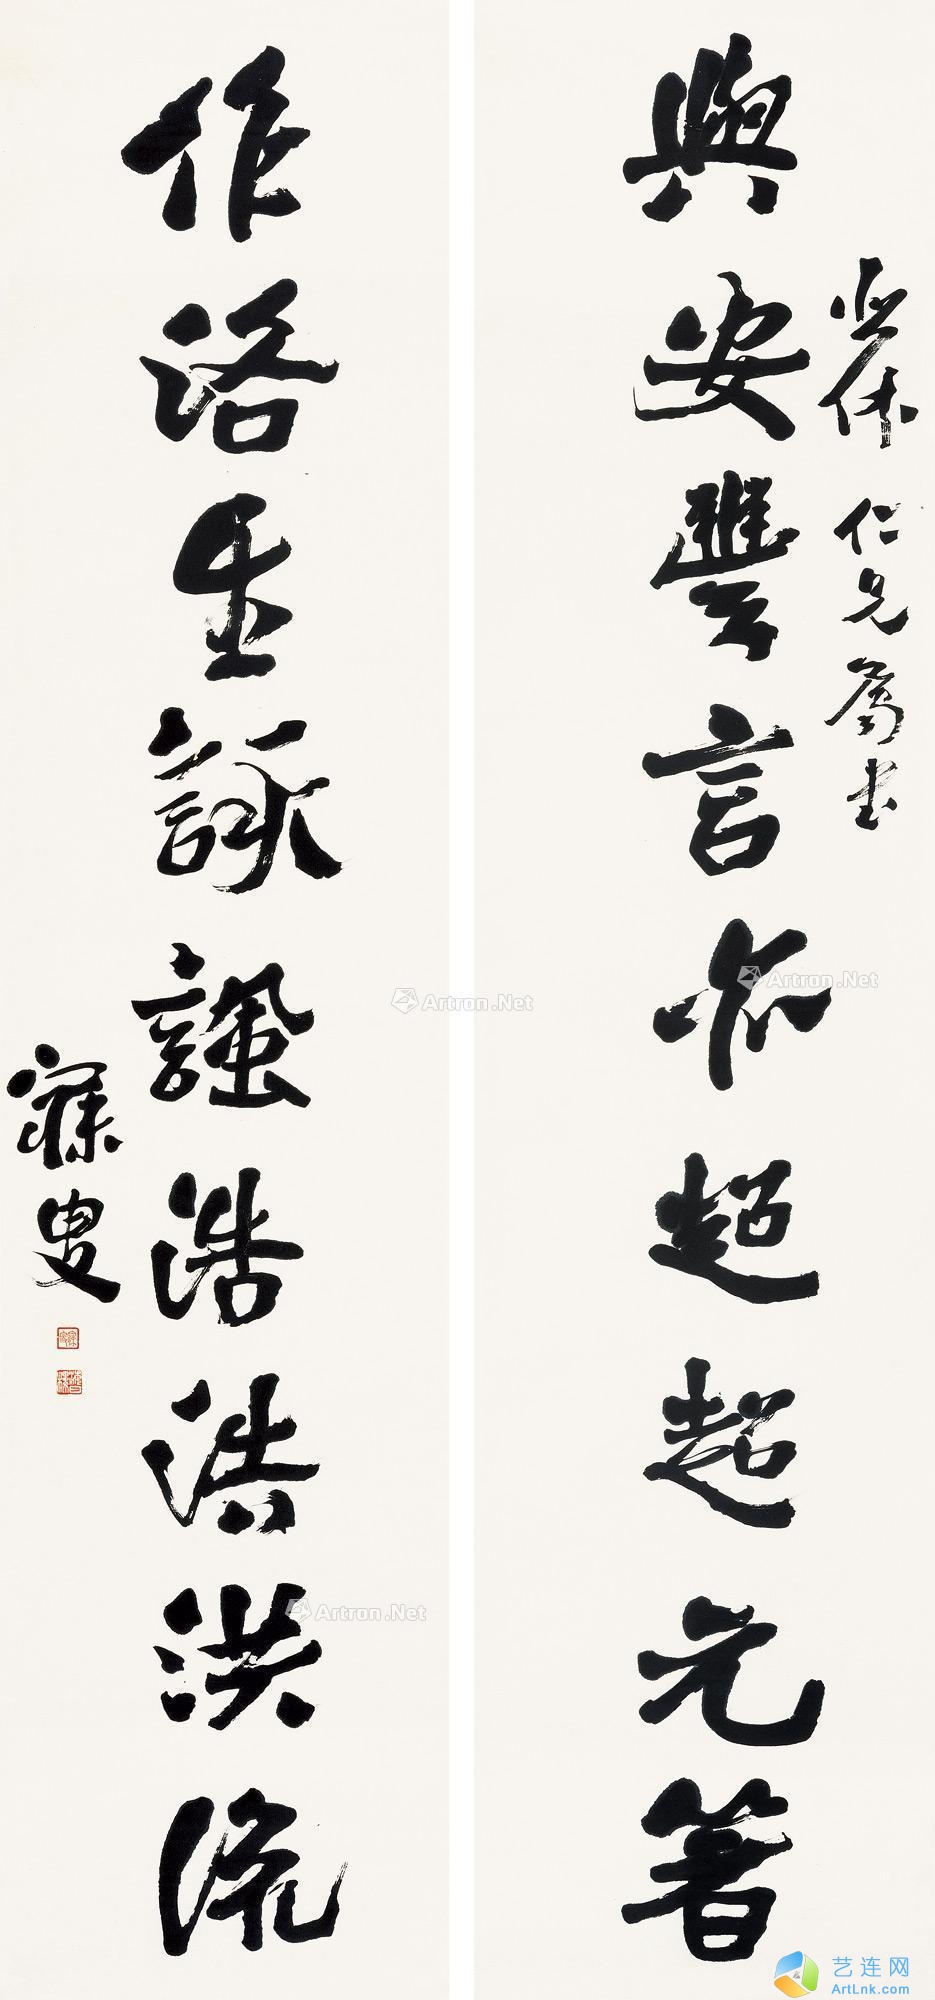 與安豐言亦超超元著
休仁兄屬書
作洛生詠諷浩浩洪流
寐叟
Artron.Net
Artron.Net
Artron.Net
艺连网
ArtLnk.com